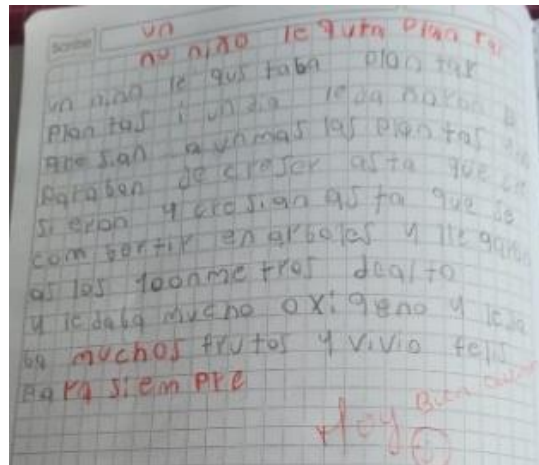 Scribe
un
no niño le guta plan tar
un ninn le gus taba plon tar
Plan tas i un dia le da
que sian a unmas las plan tas
Paraban de creser asta que
si eron y cresian as ta que se
com bertir en arboles y lle garon
as los 100nme tros dealto
y le daba mucho oxigeno y leda
ba muchos frutos y vivio felis
Para siem pre
Hoy Bien